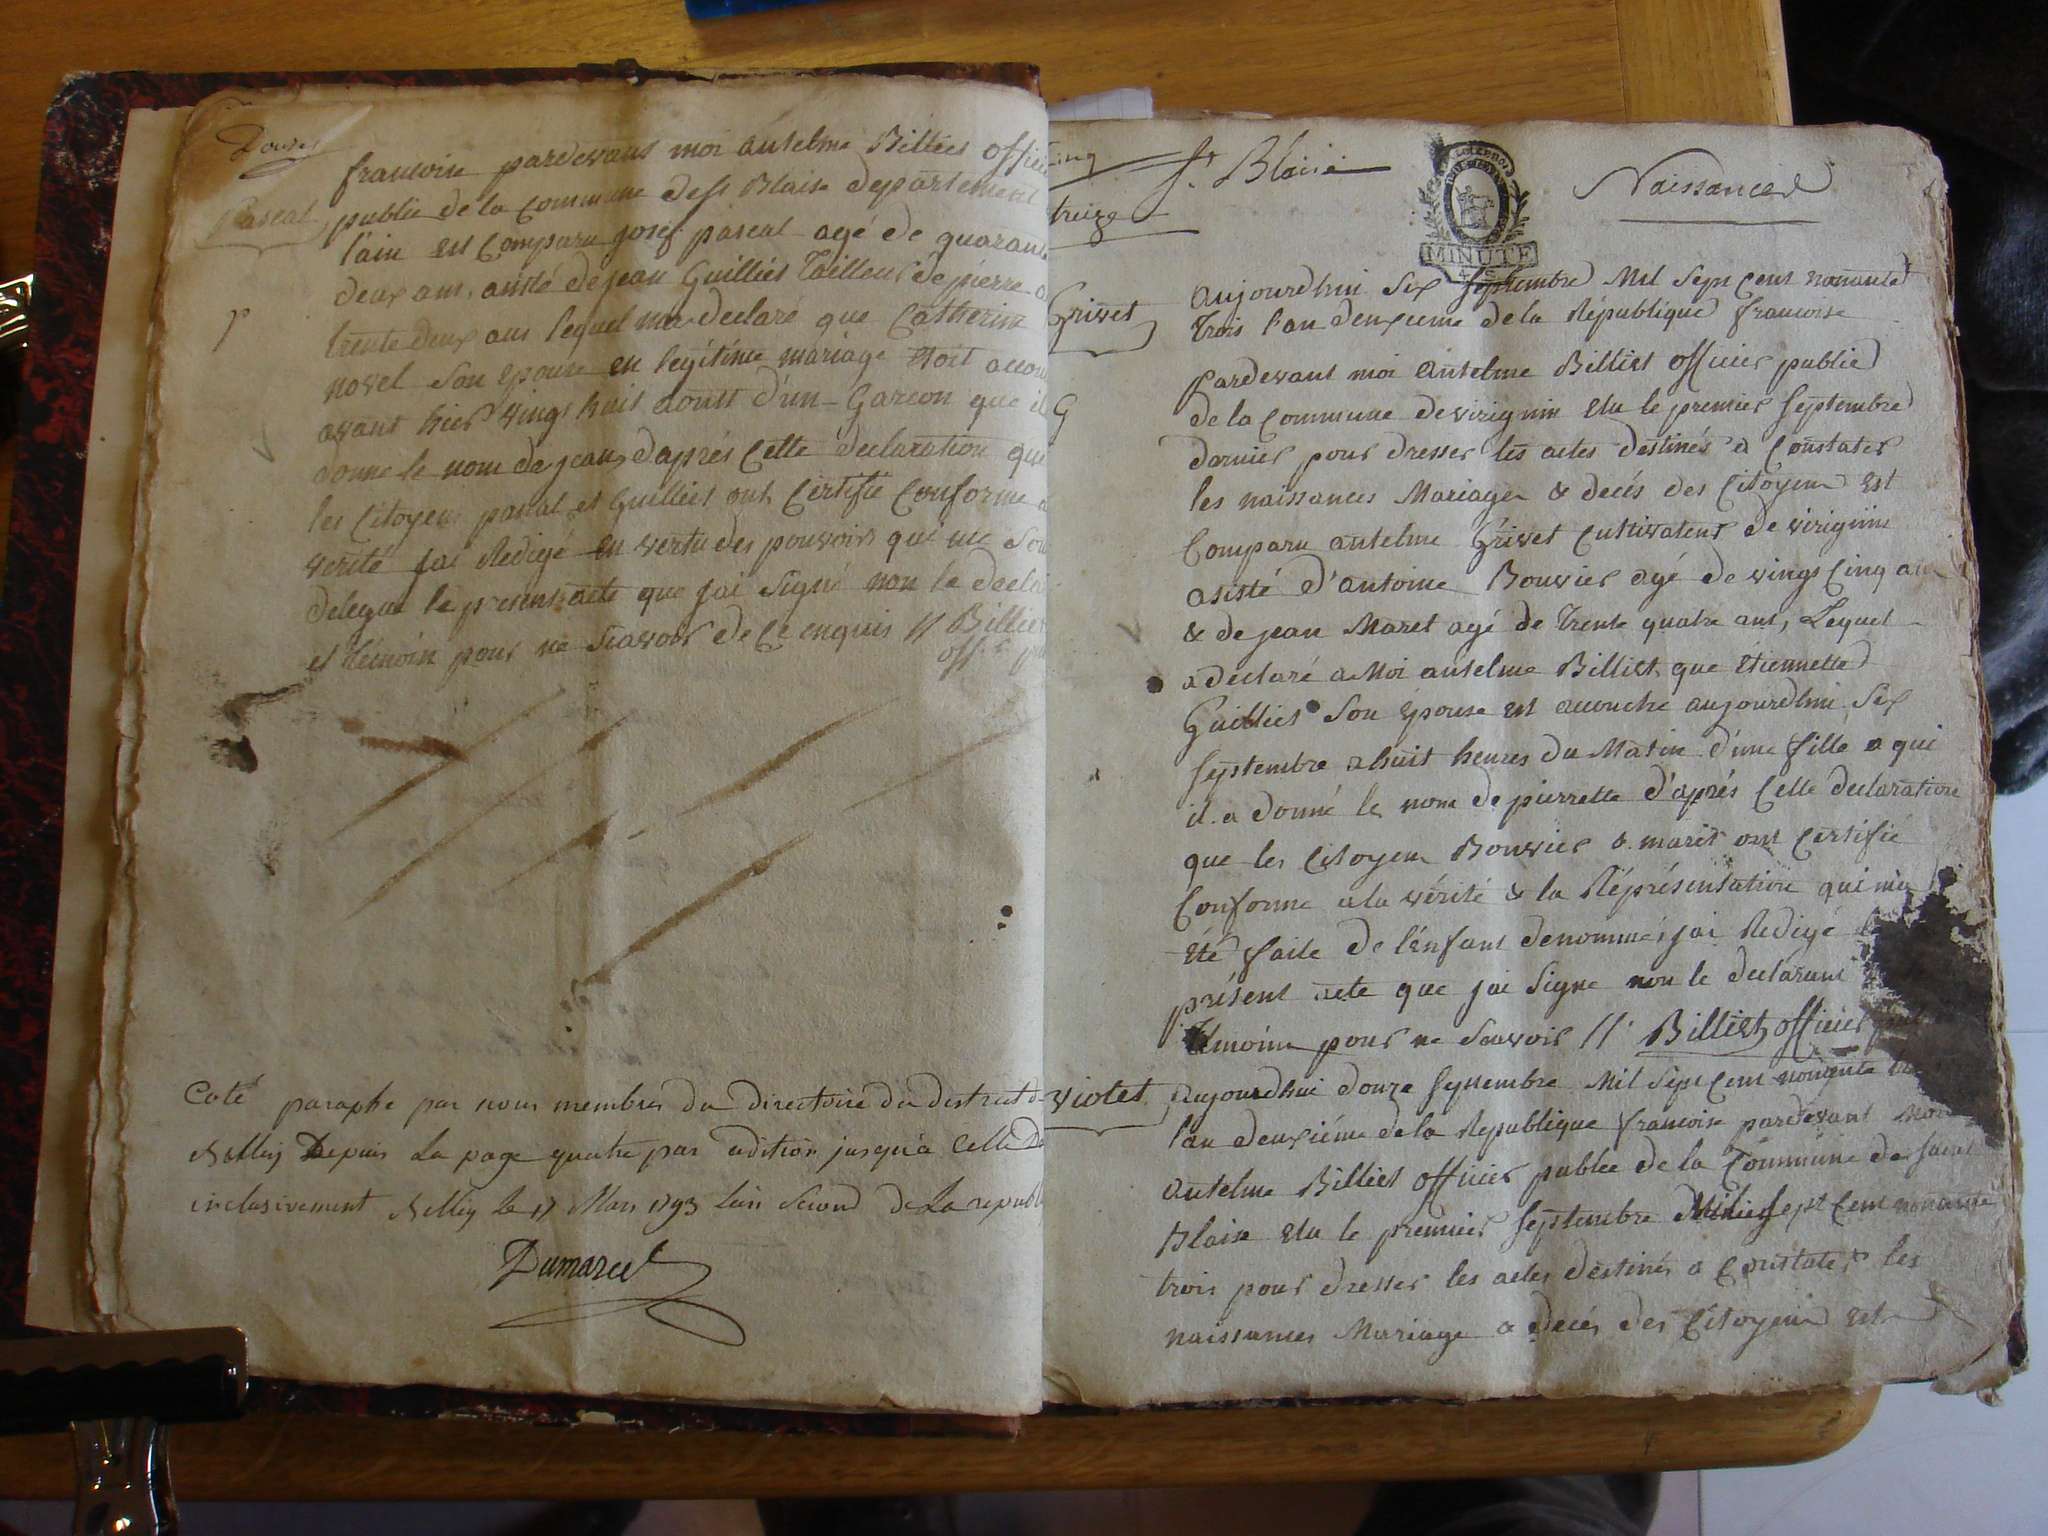 Douze
francoise pardevant moi Antelme Billiet offici
Pascal publice de la Commune de St Blaise departement
l'ain est Comparu josef pascal agé de quarante
deux ans, assisté de jean Guilliet Tailleur de pierre
P
trente deux ans lequel me declare que Catherine
novel Son épouse en legitime mariage etoit accou
avant hier vingt huit aoust d'un Garcon que il
donne le nom de jean, daprés Cette declaration que
les Citoyens pascal et Guilliet ont Certifié Conforme a
verité jai Redigé en vertu des pouvoirs qui me sont
delegue le present acte que jai Signé non le decla
et témoin pour ne Scavoir de Ce enquis // Billiet
off.er pu
Coté paraphe par nous membres du directoire du district de
Belley Depuis la page quatre par adition jusqu'a Celle
inclusivement Belley le 17 Mars 1793 l'an Second de La republ
Dumarest
St Blaise
treize
MINUTE
Naissances
Grivet
aujourdhui Six Septembre Mil Sept Cent nonante
Trois l'an deuxieme de la République francoise
pardevant moi Antelme Billiet officier public
de la Commune de virignin Elu le premier Septembre
G
dernier pour dresser les actes destinés a Constater
les naissances Mariages & decés des Citoyens est
Comparu antelme Grivet Cultivateur de virignin
asisté d'antoine Bouvier agé de vingt Cinq ans
& de jean Maret agé de Trente quatre ans, Lequel
a declaré a Moi antelme Billiet que Etiennette
Guilliet Son épouse est accouché aujourdhui Six
Septembre a huit heures du Matin d'une fille a qui
il a donné le nom de pierrette d'aprés Cette declaration
que les Citoyens Bouvier & marêt ont Certifié
Conforme a la vérité & la Réprésentation qui m'a
été faite de l'énfant denommé, jai Redigé
présent acte que jai Signe non le declarant
témoins pour ne Scavoir //. Billiet officier
Violet aujourdhui douze Septembre Mil Sept Cent nonente
l'an deuxiéme de la Republique francoise pardevant
antelme Billiet officier publee de la Commune de Saint
Blaise Elu le premier Septembre Mil Sept Cent nonante
trois pour dresser les actes destinés a Constater les
naissances Mariage & decés des Citoyens est